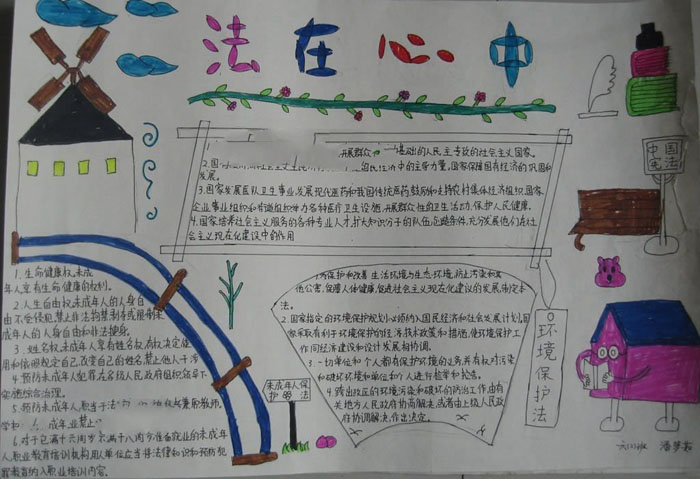 法在心中
1.
开展群众
基础的人民主专政的社会主义国家。
2.国
经济中的主导力量,国家保障国有经济的巩固和
发展。
3.国家发展医队卫生事业,发展现代医药和我国传统医药鼓励和支持农村集体经济组织国家
企业事业组织和街道组织举办各种医疗卫生设施,开展群众性的卫生活动,保护人民健康。
4.国家培养社会主义服务的各种专业人才,扩大知识分子的队伍
条件,充分发展他们在社
会主义现代化建设中的作用
中国
宪法
为保护和改善生活环境与生态环境,防止污染和其
他公害,保障人体健康,促进社会主义现代化建设的发展,制定本
法。
2.国家指定的环境保护规划必须纳入国民经济和社会发展计划,国
家采取有利于环境保护的经济、技术政策和措施,使环境保护工
作同经济建设和设计发展相协调。
3.一切单位和个人都有保护环境的义务并有权对污染
和破坏环境和单位和个人进行检举和控告。
4.跨击政区的环境污染和破坏的防治工作,由有
关地方人民政府协商解决,或者由上级人民政
府协调解决,作出决定。
环境保护法
1.生命健康权,未成
年人享有生命健康的权利。
2.人生自由权未成年人的人身自
由不受侵犯禁止非法拘禁
或限制未
成年人的人身自由和非法搜身。
3.姓名权,未成年人享有姓名权,有权决定使
用和依规定自己,改变自己的姓名禁止他人干涉
4.预防未成年人犯罪在各级人民政府组织领导下
实施综合治理。
5.预防未成年人
法
兼职教师,
学校
成年
禁止
6.对于已满十六周岁不满十八周岁准备就业的未成年
人,职业教育培训机构用人单位应当将法律知识和预防犯
罪教育纳入职业培训内容。
未成年人保
护法
六
班
潘梦